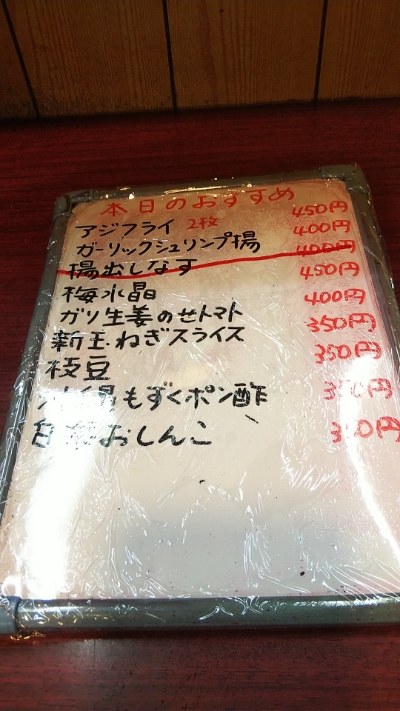 本日のおすすめ
アジフライ 2枚 450円
ガーリックシュリンプ揚 400円
揚出しなす 400円
梅水晶 450円
ガリ生姜のせトマト 400円
新玉ねぎスライス 350円
枝豆 350円
もずくポン酢 350円
白菜おしんこ 350円